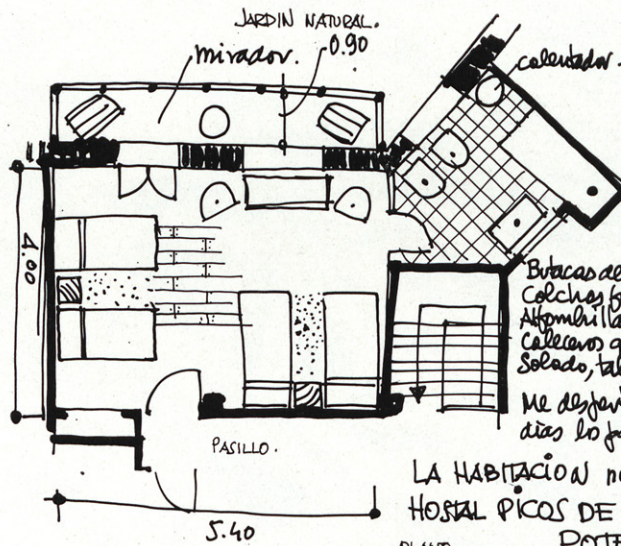 JARDIN NATURAL.
mirador. 0.90
calentador.
4.00
Butacas de
Colchas
Alfombrilla
Solado,
dias los
PASILLO.
LA HABITACION
HOSTAL PICOS DE
5.40